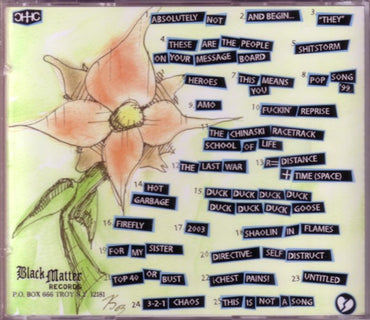 CHHC
1. ABSOLUTELY NOT 2. AND BEGIN... 3. "THEY"
4. THESE ARE THE PEOPLE
ON YOUR MESSAGE BOARD
5. SHITSTORM
6. HEROES 7. THIS MEANS
YOU
8. POP SONG
'99
9. AMO 10. FUCKIN' REPRISE
11. THE CHINASKI RACETRACK
SCHOOL OF LIFE
12. THE LAST WAR 13. R= DISTANCE
+ TIME (SPACE)
14. HOT
GARBAGE
15. DUCK DUCK DUCK DUCK
DUCK DUCK DUCK GOOSE
16. FIREFLY 17. 2003 18. SHAOLIN IN FLAMES
19. FOR MY SISTER 20. DIRECTIVE: SELF DISTRUCT
21. TOP 40 OR BUST 22. ¡CHEST PAINS! 23. UNTITLED
24. 3-2-1 CHAOS 25. THIS IS NOT A SONG
Black Matter
RECORDS
P.O. BOX 666 TROY N.Y. 12181